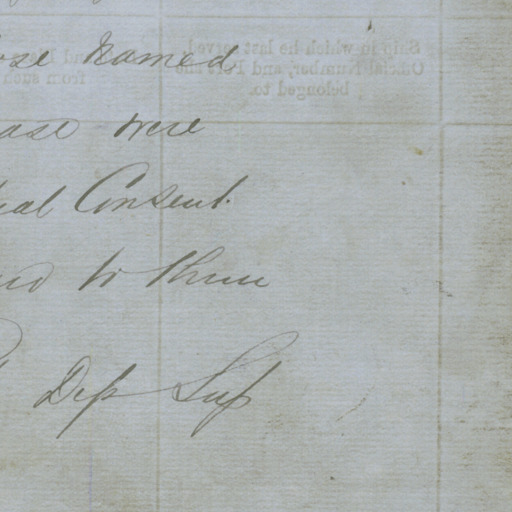 ose named
ease were
ual Consent.
and to them
Dep Sup
Ship in which he last served
Official Number, and Port she
belonged to.
from such